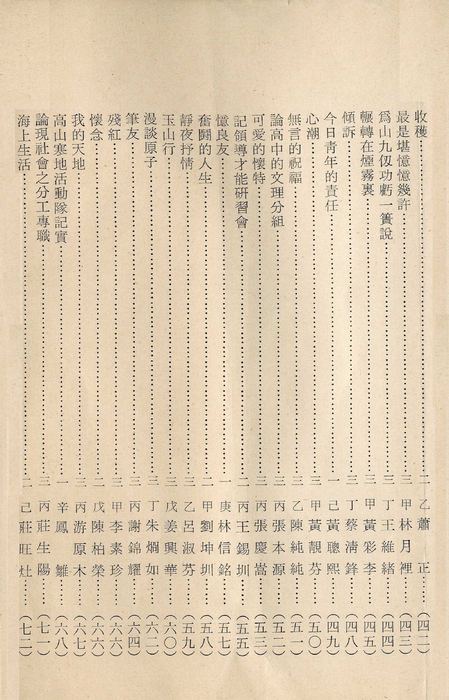 收穫……二乙蕭　正……（四二）
最是堪憶憶幾許……三甲林月裡……（四三）
爲山九仭功虧一簣說……三丁王維緒……（四四）
輾轉在煙霧裏……三甲黃彩李……（四五）
傾訴……三丁蔡淸鋒……（四八）
今日靑年的責任……一己黃聰熙……（四九）
心潮……三甲黃靚芬……（五〇）
無言的祝福……三乙陳純純……（五一）
論高中的文理分組……三丙張本源……（五二）
可愛的懷特……三丙張慶嵩……（五三）
記領導才能硏習會……二丙王錫圳……（五五）
憶良友……一庚林信銘……（五七）
奮鬪的人生……二甲劉坤圳……（五八）
靜夜抒情……三乙呂淑芬……（五九）
玉山行……三戊姜興華……（六〇）
漫談原子……三丁朱烱如……（六二）
筆友……三丙謝錦耀……（六四）
殘紅……三甲李素珍……（六六）
懷念……二戊陳柏榮……（六六）
我的天地……三丙游原木……（六七）
高山寒地活動隊記實……一辛鳳　雛……（六八）
論現社會之分工專職……三丙莊生陽……（七一）
海上生活……二己莊旺灶……（七二）